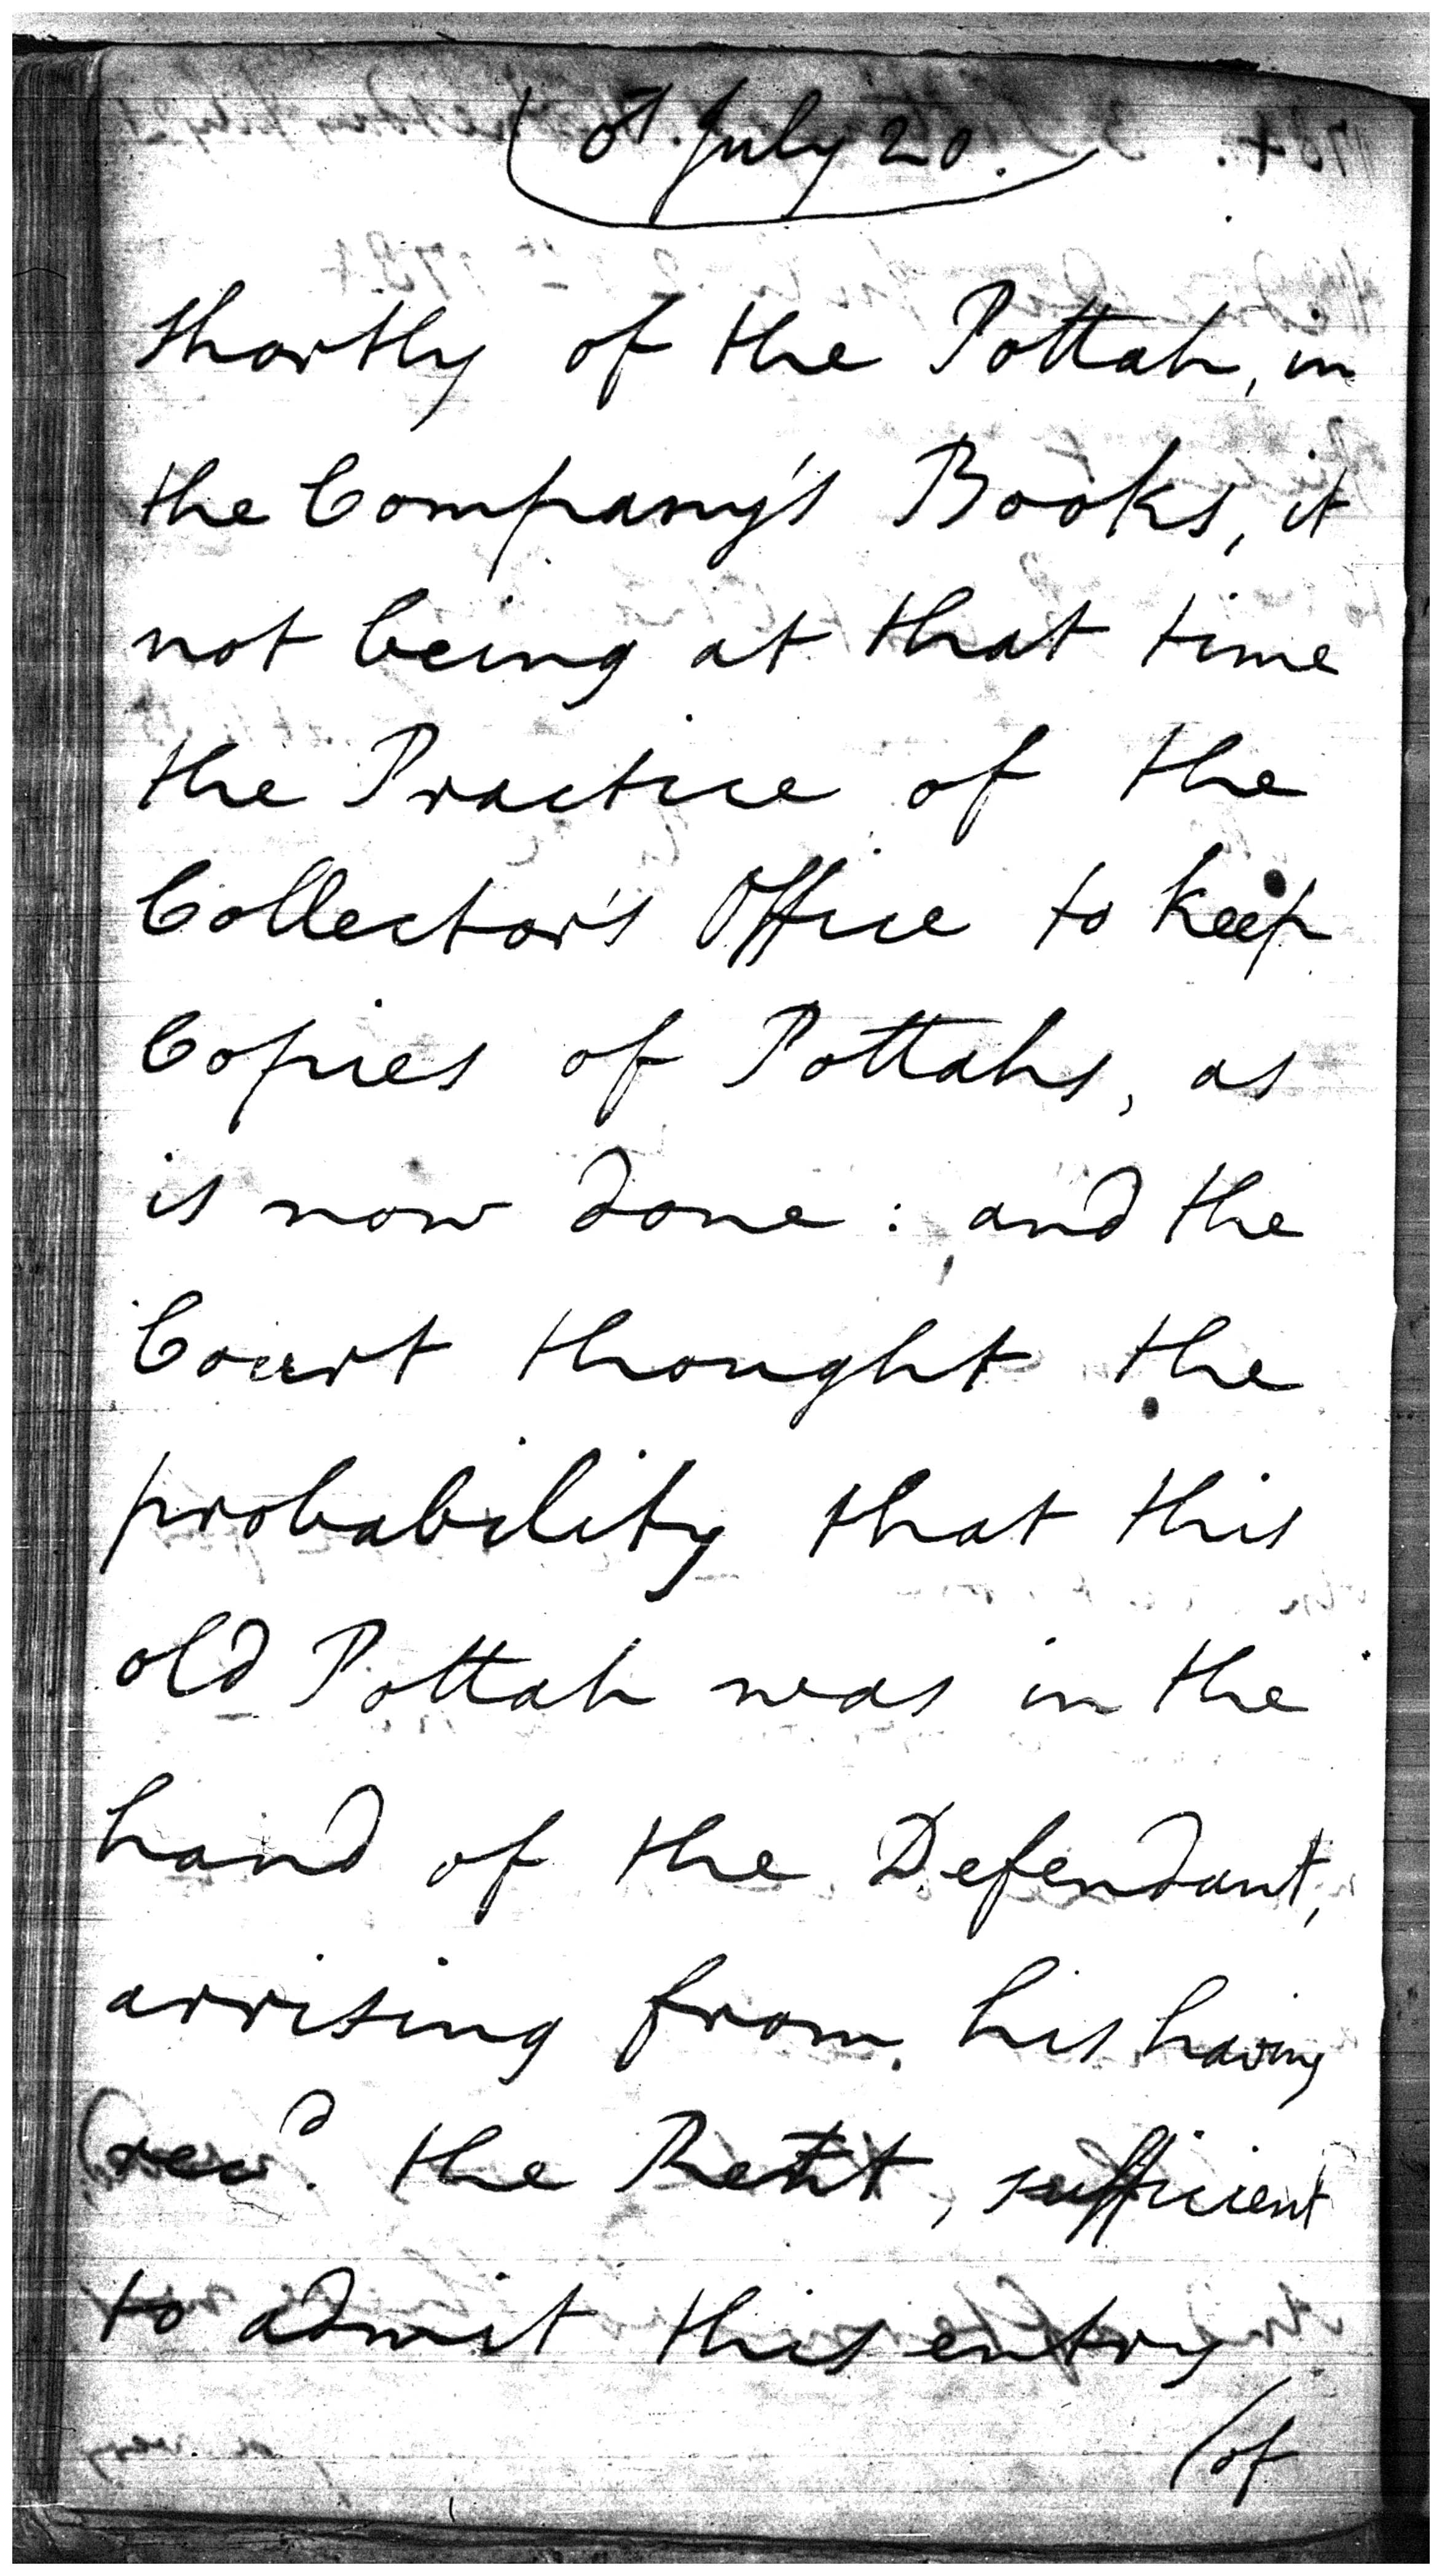 (of July 20.
shortly of the Pottah, in
the Company's Books, it
not being at that time
the Practice of the
Collector's Office to keep
Copies of Pottahs, as
is now done : and the
Court thought the
probability that this
old Pottah was in the
hand of the Defendant,
arrising from his having
rec.d the Rent, sufficient
to admit this entry
(of